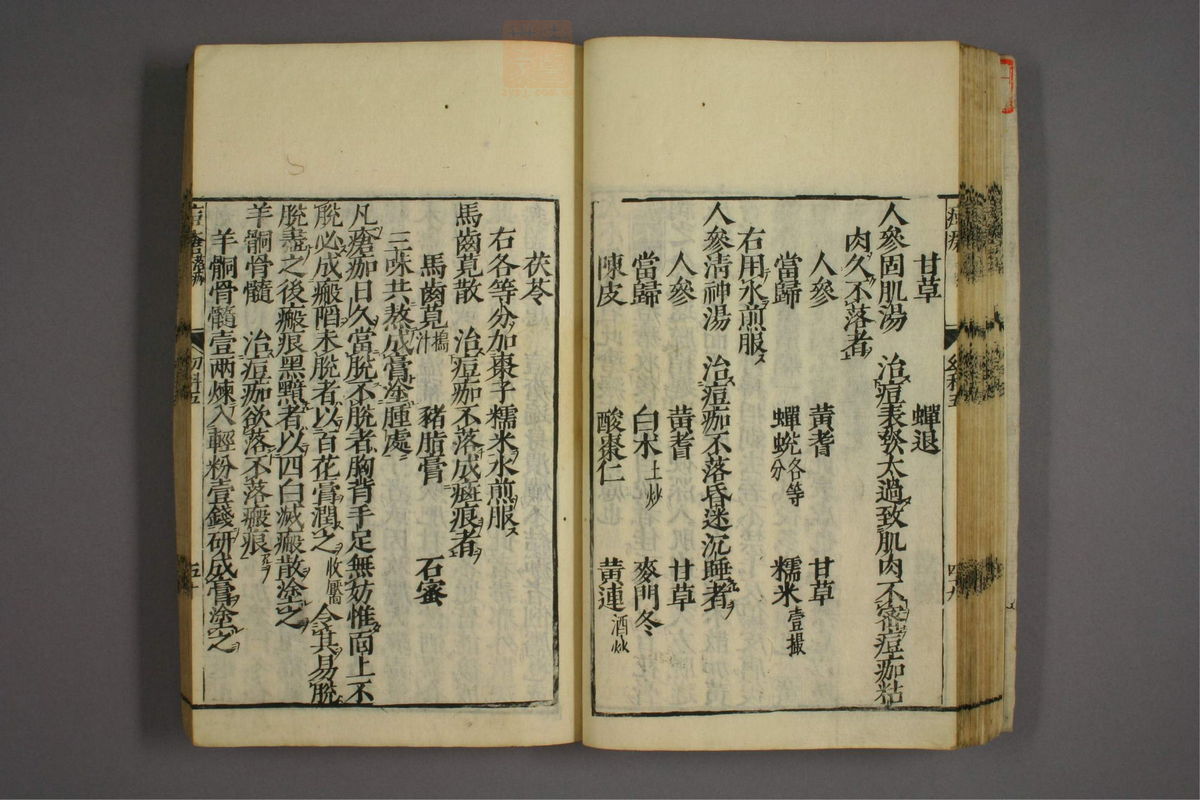 甘草 蟬退
人參固肌湯 治痘表發太過致肌肉不密痘痂粘
肉久不落者
人參 黃耆 甘草
當歸 蟬蛻各等分 糯米壹撮
右用水煎服
人參淸神湯 治痘痂不落昏迷沉睡者
人參 黃耆 甘草
當歸 白朮土炒 麥門冬
陳皮 酸棗仁 黃連酒炒
茯苓
右各等分加棗子糯米水煎服
馬齒莧散 治痘痂不落成瘢痕者
馬齒莧搗汁 豬脂膏 石蜜
三味共熬成膏塗腫處
凡瘡痂日久當脫不脫者胸背手足無妨惟面上不
脫必成瘢陷未脫者以百花膏潤之收靨令其易脫
脫盡之後瘢痕黑黯者以四白滅瘢散塗之
羊䯊骨髓 治痘痂欲落不落瘢痕
羊䯊骨髓壹兩煉入輕粉壹錢研成膏塗之